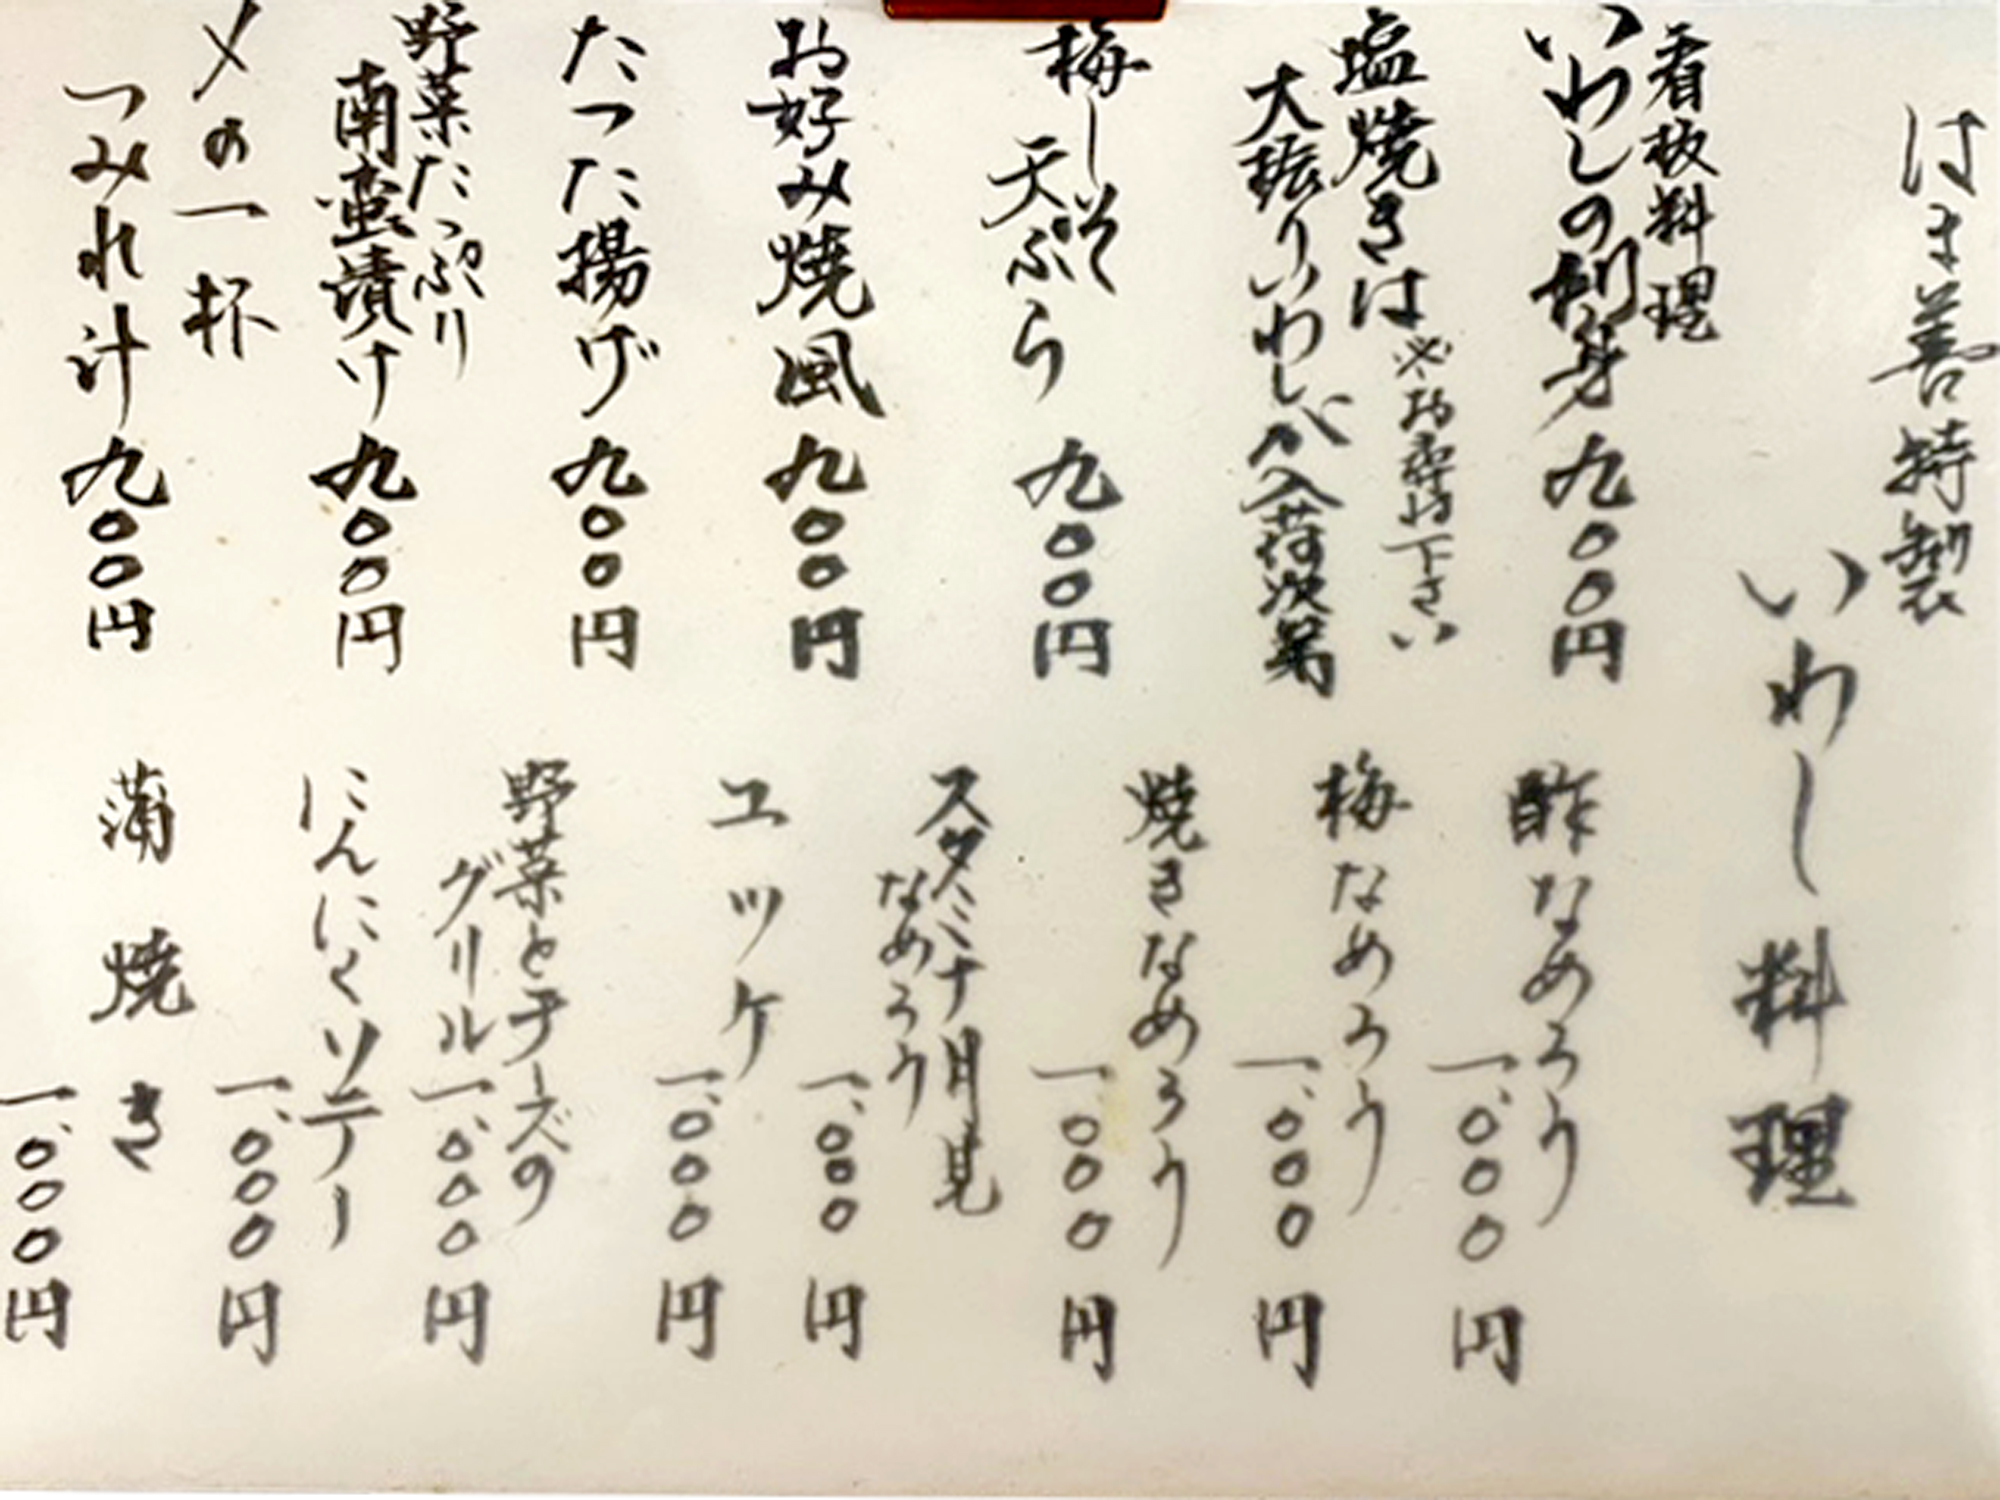 はま善特製
いわし料理
看板料理
いわしの刺身 九〇〇円
塩焼きは ※お尋ね下さい
大振りいわしが入荷次第
梅しそ
天ぷら 九〇〇円
お好み焼風 九〇〇円
たつた揚げ 九〇〇円
野菜たっぷり
南蛮漬け 九〇〇円
〆の一杯
つみれ汁 九〇〇円
酢なめろう
一、〇〇〇円
梅なめろう
一、〇〇〇円
焼きなめろう
一、〇〇〇円
スタミナ月見
なめろう
一、〇〇〇円
ユッケ
一、〇〇〇円
野菜とチーズの
グリル 一、〇〇〇円
にんにくソテー
一、〇〇〇円
蒲焼き
一、〇〇〇円